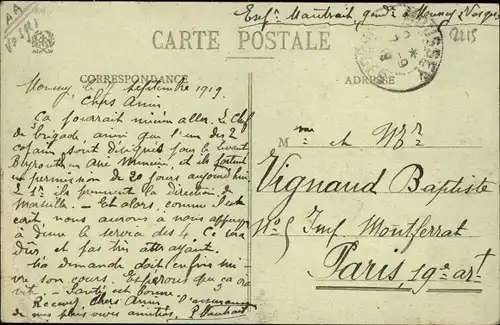 Exp. Mautrait gendre à Moussey (Vosges)
2215
CARTE POSTALE
CORRESPONDANCE
ADRESSE
Moussey, le 11 Septembre 1919
Chers Amis
Ça pourrait mieux aller. Le Chef
de brigade ainsi que l'un des 2
copains sont désignés pour le Levant
Beyrouth en Asie Mineure, et ils partent
en permission de 20 jours aujourd'hui
ils prennent la direction de
Marseille. — Et alors, comme il est
écrit nous aurons à nous appuyer
à deux le service des 4. Ce sera
dûr et pas très attrayant.
Ma demande doit enfin suivre
son cours. Espérons que ça ira
vite. Santé est bonne
Recevez Chers Amis l'assurance
de nos plus vives amitiés.
Mme et Mr
Vignaud Baptiste
No 5 Imp. Montferrat
Paris, 19e art